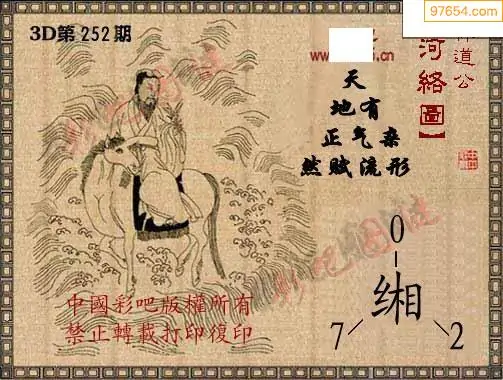 97654.com
3D第252期
www.
.cn
道公
河络圖】
天
地有
正气杂
然赋流形
0
缃
7
2
彩吧圖说
彩吧圖说
中國彩吧版權所有
禁止轉載打印復印